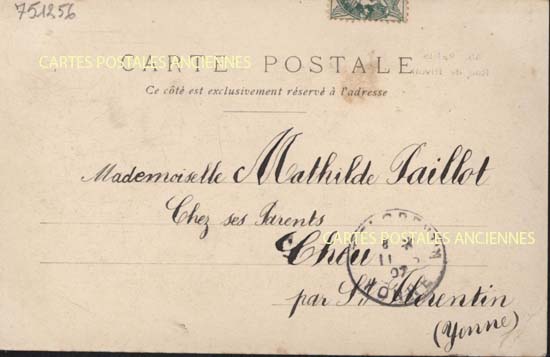 751256
CARTES POSTALES ANCIENNES
CARTE POSTALE
Ce côté est exclusivement réservé à l'adresse
Mademoiselle Mathilde Paillot
Chez ses Parents
CARTES POSTALES ANCIENNES
Chéu
par St Florentin
(Yonne)